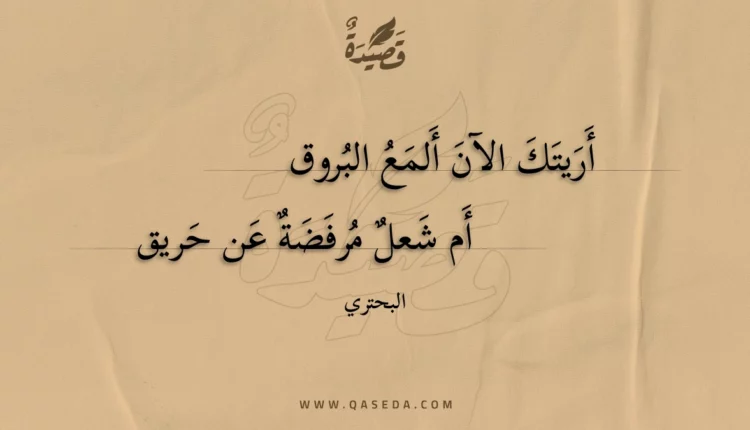 قَصِيدَةٌ
أَرَيتَكَ الآنَ أَلمَعُ البُروق
أَم شَعلٌ مُرفَضَةٌ عَن حَريق
البحتري
WWW.QASEDA.COM